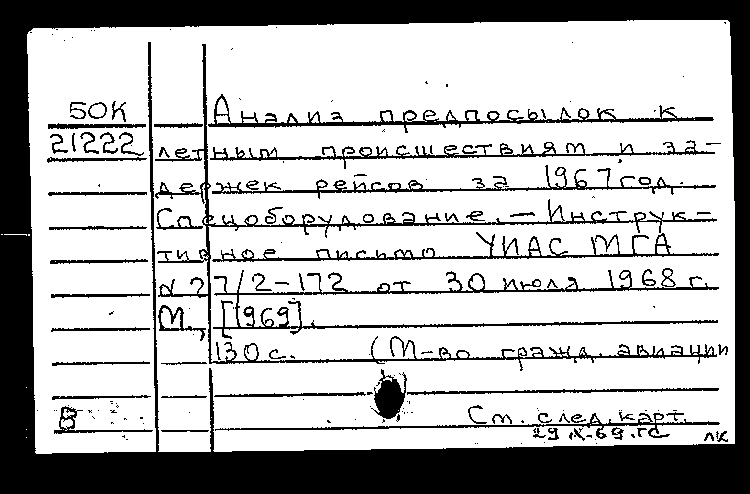 50К Анализ предпосылок к
21222 летным происшествиям и за-
держек рейсов за 1967 год.
Спецоборудование. — Инструк-
тивное письмо УИАС МГА
№ 27/2-172 от 30 июля 1968 г.
М., [1969].
130 с. (М-во гражд. авиации
В См. след. карт.
29.X.69.гс ЛК